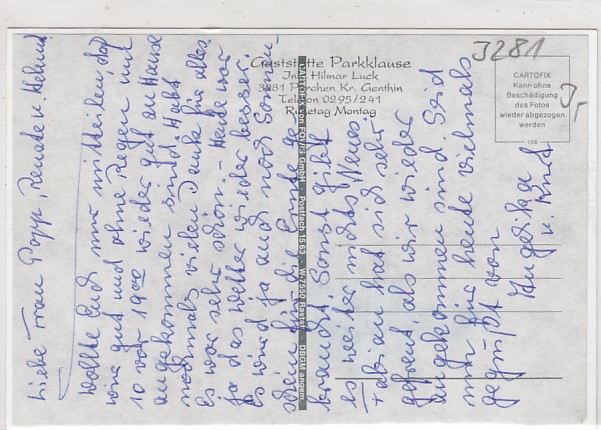 J281
Gaststätte Parkklause
Inh. Hilmar Luck
3281 Parchen Kr. Genthin
Telefon 0295/241
Ruhetag Montag
CARTOFIX
Kann ohne
Beschädigung
des Fotos
wieder abgezogen
werden
106
CARTOFIX von FOLTIS GmbH · Postfach 1563 · W-7550 Rastatt · DBGM angem.
Liebe Frau Popp, Renate u. Helmut
Wollte Euch nur mitteilen, daß
wir gut und ohne Regen mit
10 vor 19 00 wieder gut zu Hause
angekommen sind. Habt
nochmals vielen Dank für alles,
Es war sehr schön. Heute war
ja das Wetter wieder besser.
Es wird ja auch noch Sonnen-
schein für die Ernte ge-
braucht. Sonst gibt
es weiter nichts Neues.
Fabian hat sich sehr
gefreut als wir wieder
angekommen sind. Seid
nun für heute vielmals
gegrüßt von
Angelika
u.